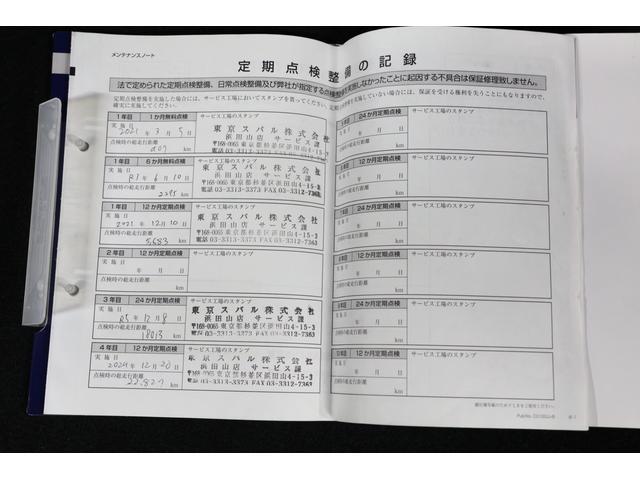 メンテナンスノート
定期点検整備の記録
法で定められた定期点検整備、日常点検整備及び弊社が指定する点検整備を実施しなかったことに起因する不具合は保証修理致しません。
定期点検整備を実施した場合には、サービス工場においてスタンプを貰ってください。
確実に実施してください。
実施していない場合には、保証を受ける権利を失うこともなりますので、
1年目 1か月無料点検 サービス工場のスタンプ
実施日 2021年3月5日
点検時の総走行距離 507 km
東京スバル株式会社
浜田山店 サービス課
〒168-0065 東京都杉並区浜田山4-15-3
電話 03-3313-3373 FAX 03-3312-7363
1年目 6か月無料点検 サービス工場のスタンプ
実施日 R3年6月10日
点検時の総走行距離 2295 km
東京スバル株式会社
浜田山店 サービス課
〒168-0065 東京都杉並区浜田山4-15-3
電話 03-3313-3373 FAX 03-3312-7363
1年目 12か月定期点検 サービス工場のスタンプ
実施日 2021年12月10日
点検時の総走行距離 5,683 km
東京スバル株式会社
浜田山店 サービス課
〒168-0065 東京都杉並区浜田山4-15-3
電話 03-3313-3373 FAX 03-3312-7363
2年目 12か月定期点検 サービス工場のスタンプ
実施日 年 月 日
点検時の総走行距離 km
3年目 24か月定期点検 サービス工場のスタンプ
実施日 R5年12月8日
点検時の総走行距離 18013 km
東京スバル株式会社
浜田山店 サービス課
〒168-0065 東京都杉並区浜田山4-15-3
電話 03-3313-3373 FAX 03-3312-7363
4年目 12か月定期点検 サービス工場のスタンプ
実施日 2024年12月20日
点検時の総走行距離 22,827 km
東京スバル株式会社
浜田山店 サービス課
〒168-0065 東京都杉並区浜田山4-15-3
電話 03-3313-3373 FAX 03-3312-7363
24か月定期点検 サービス工場のスタンプ
年 月 日
点検時の総走行距離 km
12か月定期点検 サービス工場のスタンプ
年 月 日
点検時の総走行距離 km
24か月定期点検 サービス工場のスタンプ
年 月 日
点検時の総走行距離 km
12か月定期点検 サービス工場のスタンプ
年 月 日
点検時の総走行距離 km
24か月定期点検 サービス工場のスタンプ
年 月 日
点検時の総走行距離 km
12か月定期点検 サービス工場のスタンプ
年 月 日
点検時の総走行距離 km